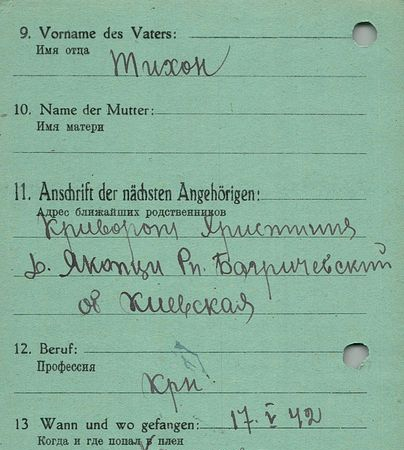 9. Vorname des Vaters:
Имя отца
Тихон
10. Name der Mutter:
Имя матери
11. Anschrift der nächsten Angehörigen:
Адрес ближайших родственников
Криворот Христиния
д. Якопци Рн. Багричевский
об Киевская
12. Beruf:
Профессия
Крн.
13 Wann und wo gefangen: 17. V 42
Когда и где попал в плен